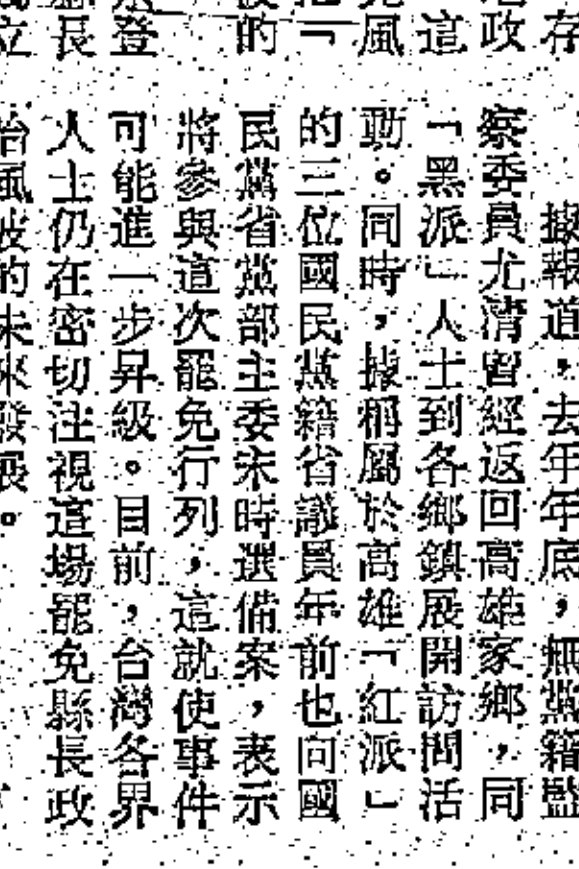 存
政
這
風
「
的
登
長
立
據報道，去年年底，無黨籍監
察委員尤清曾經返回高雄家鄉，同
「黑派」人士到各鄉鎮展開訪問活
動。同時，據稱屬於高雄「紅派」
的三位國民黨籍省議員年前也向國
民黨省黨部主委宋時選備案，表示
將參與這次罷免行列，這就使事件
可能進一步昇級。目前，台灣各界
人士仍在密切注視這場罷免縣長政
治風波的未來發展。